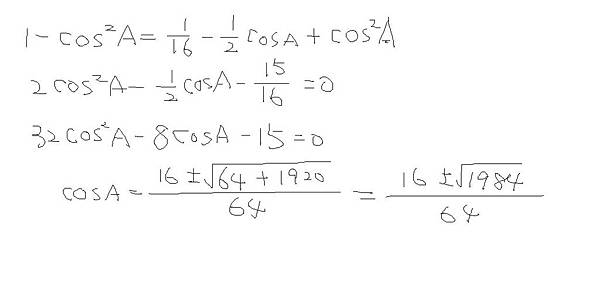 1 - cos²A = 1/16 - 1/2 cosA + cos²A
2cos²A - 1/2 cosA - 15/16 = 0
32cos²A - 8cosA - 15 = 0
cosA = (16 ± √(64 + 1920))/64 = (16 ± √1984)/64